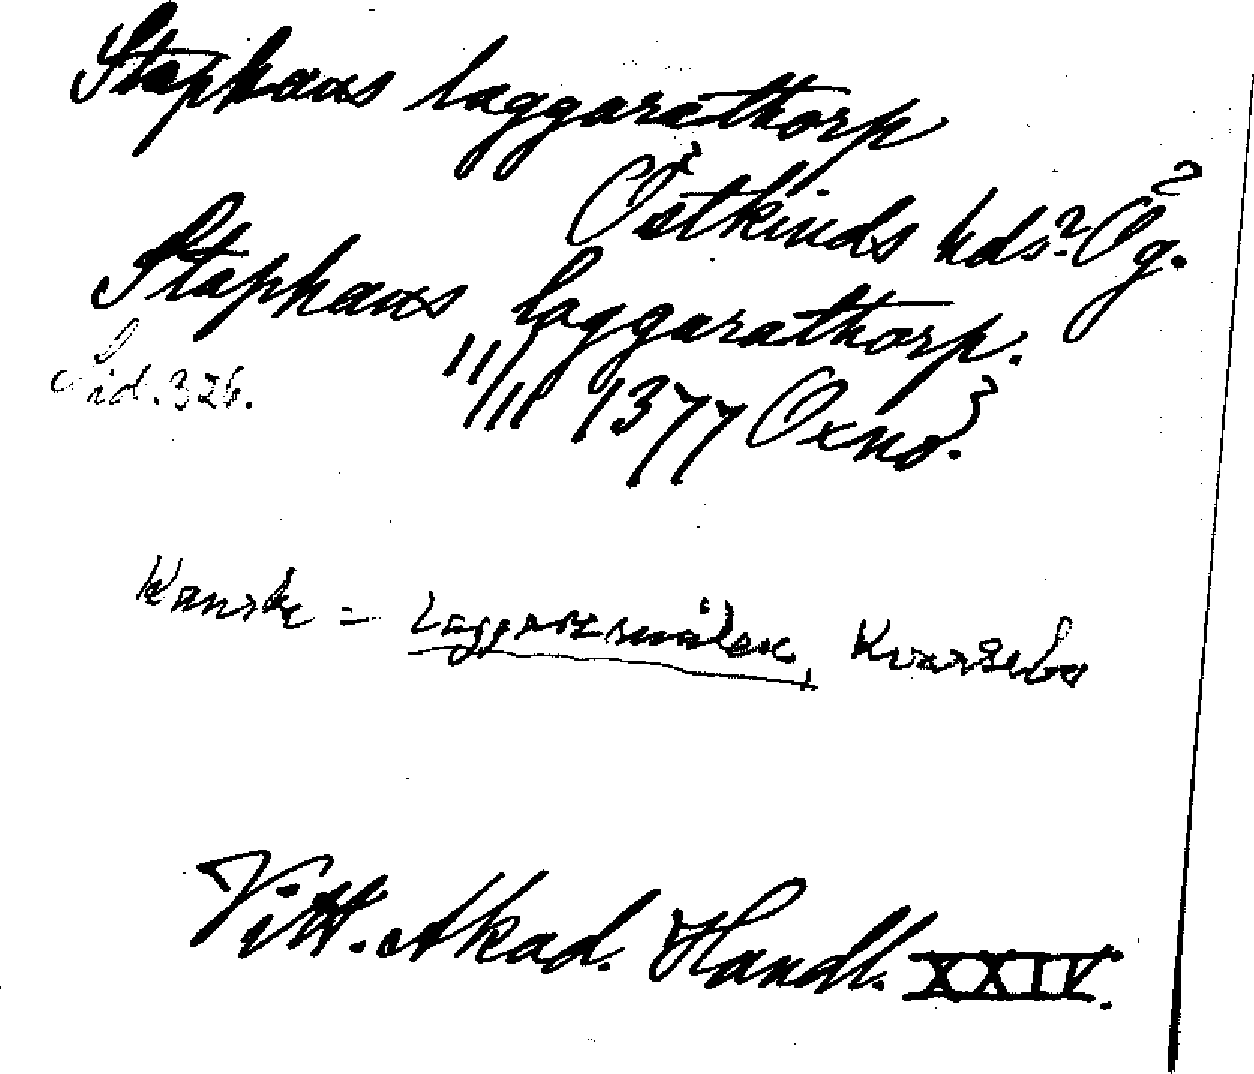 Staphans laggarathorp
Östkinds hds? Ög.?
Staphans laggarathorp.
Sid. 326. 11/11 1377 Oxnö.?
Kanske = Laggaresmålen, Kvarsebo
Vitt. Akad. Handl. XXIV.